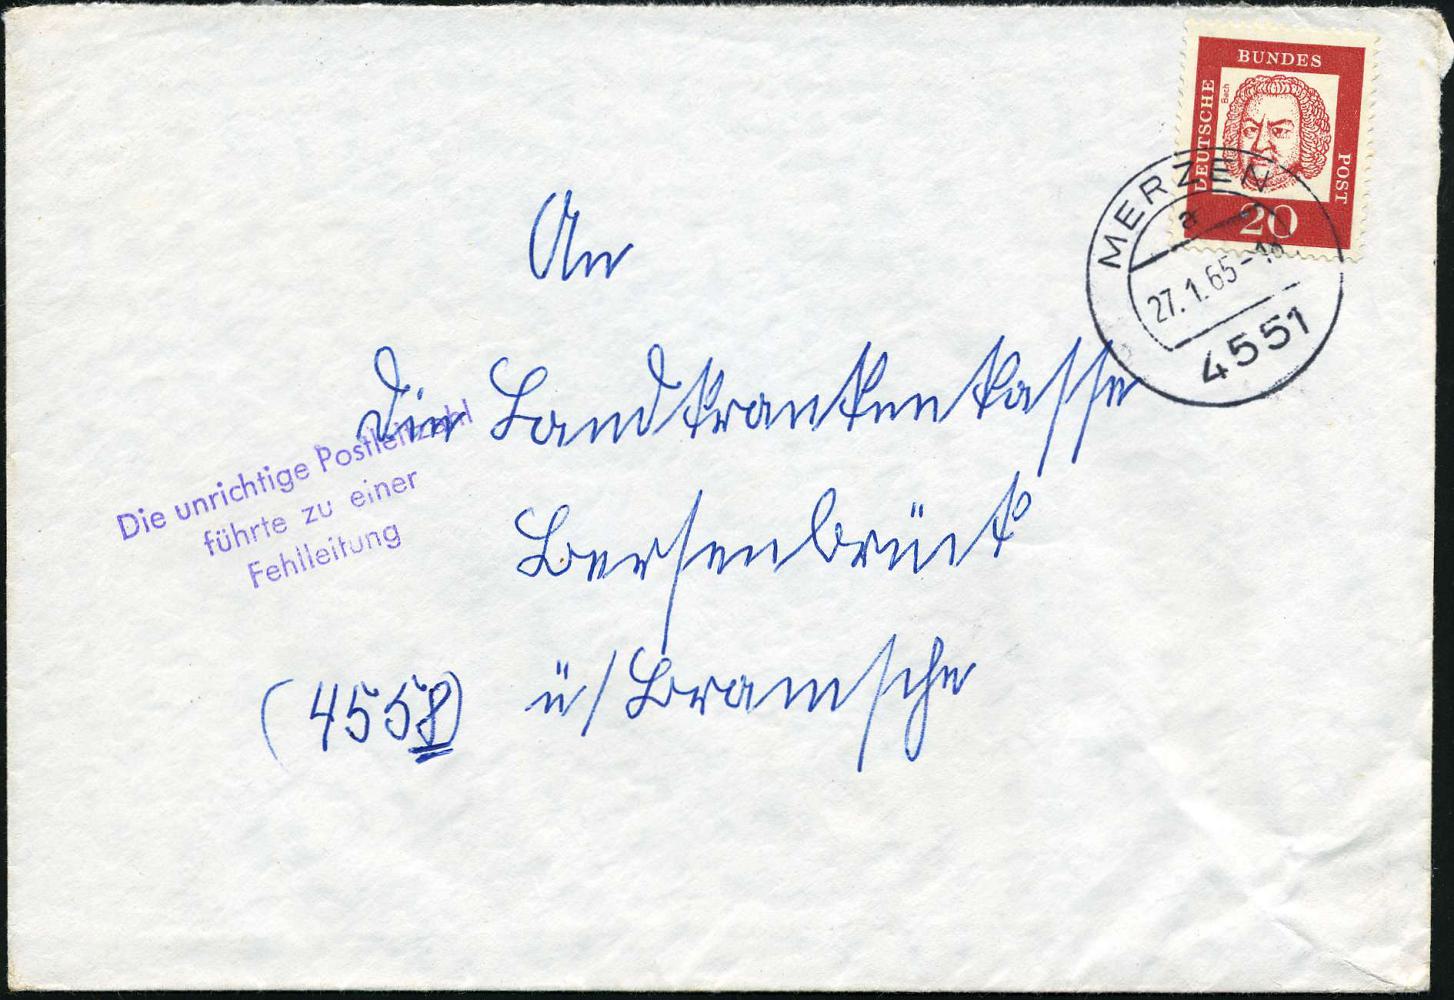 DEUTSCHE BUNDES POST
Bach
20
MERZEN
a
27.1.65-18
4551
An
die Landkrankenkasse
Bersenbrück
(4558) ü/Bramsche
Die unrichtige Postleitzahl
führte zu einer
Fehlleitung